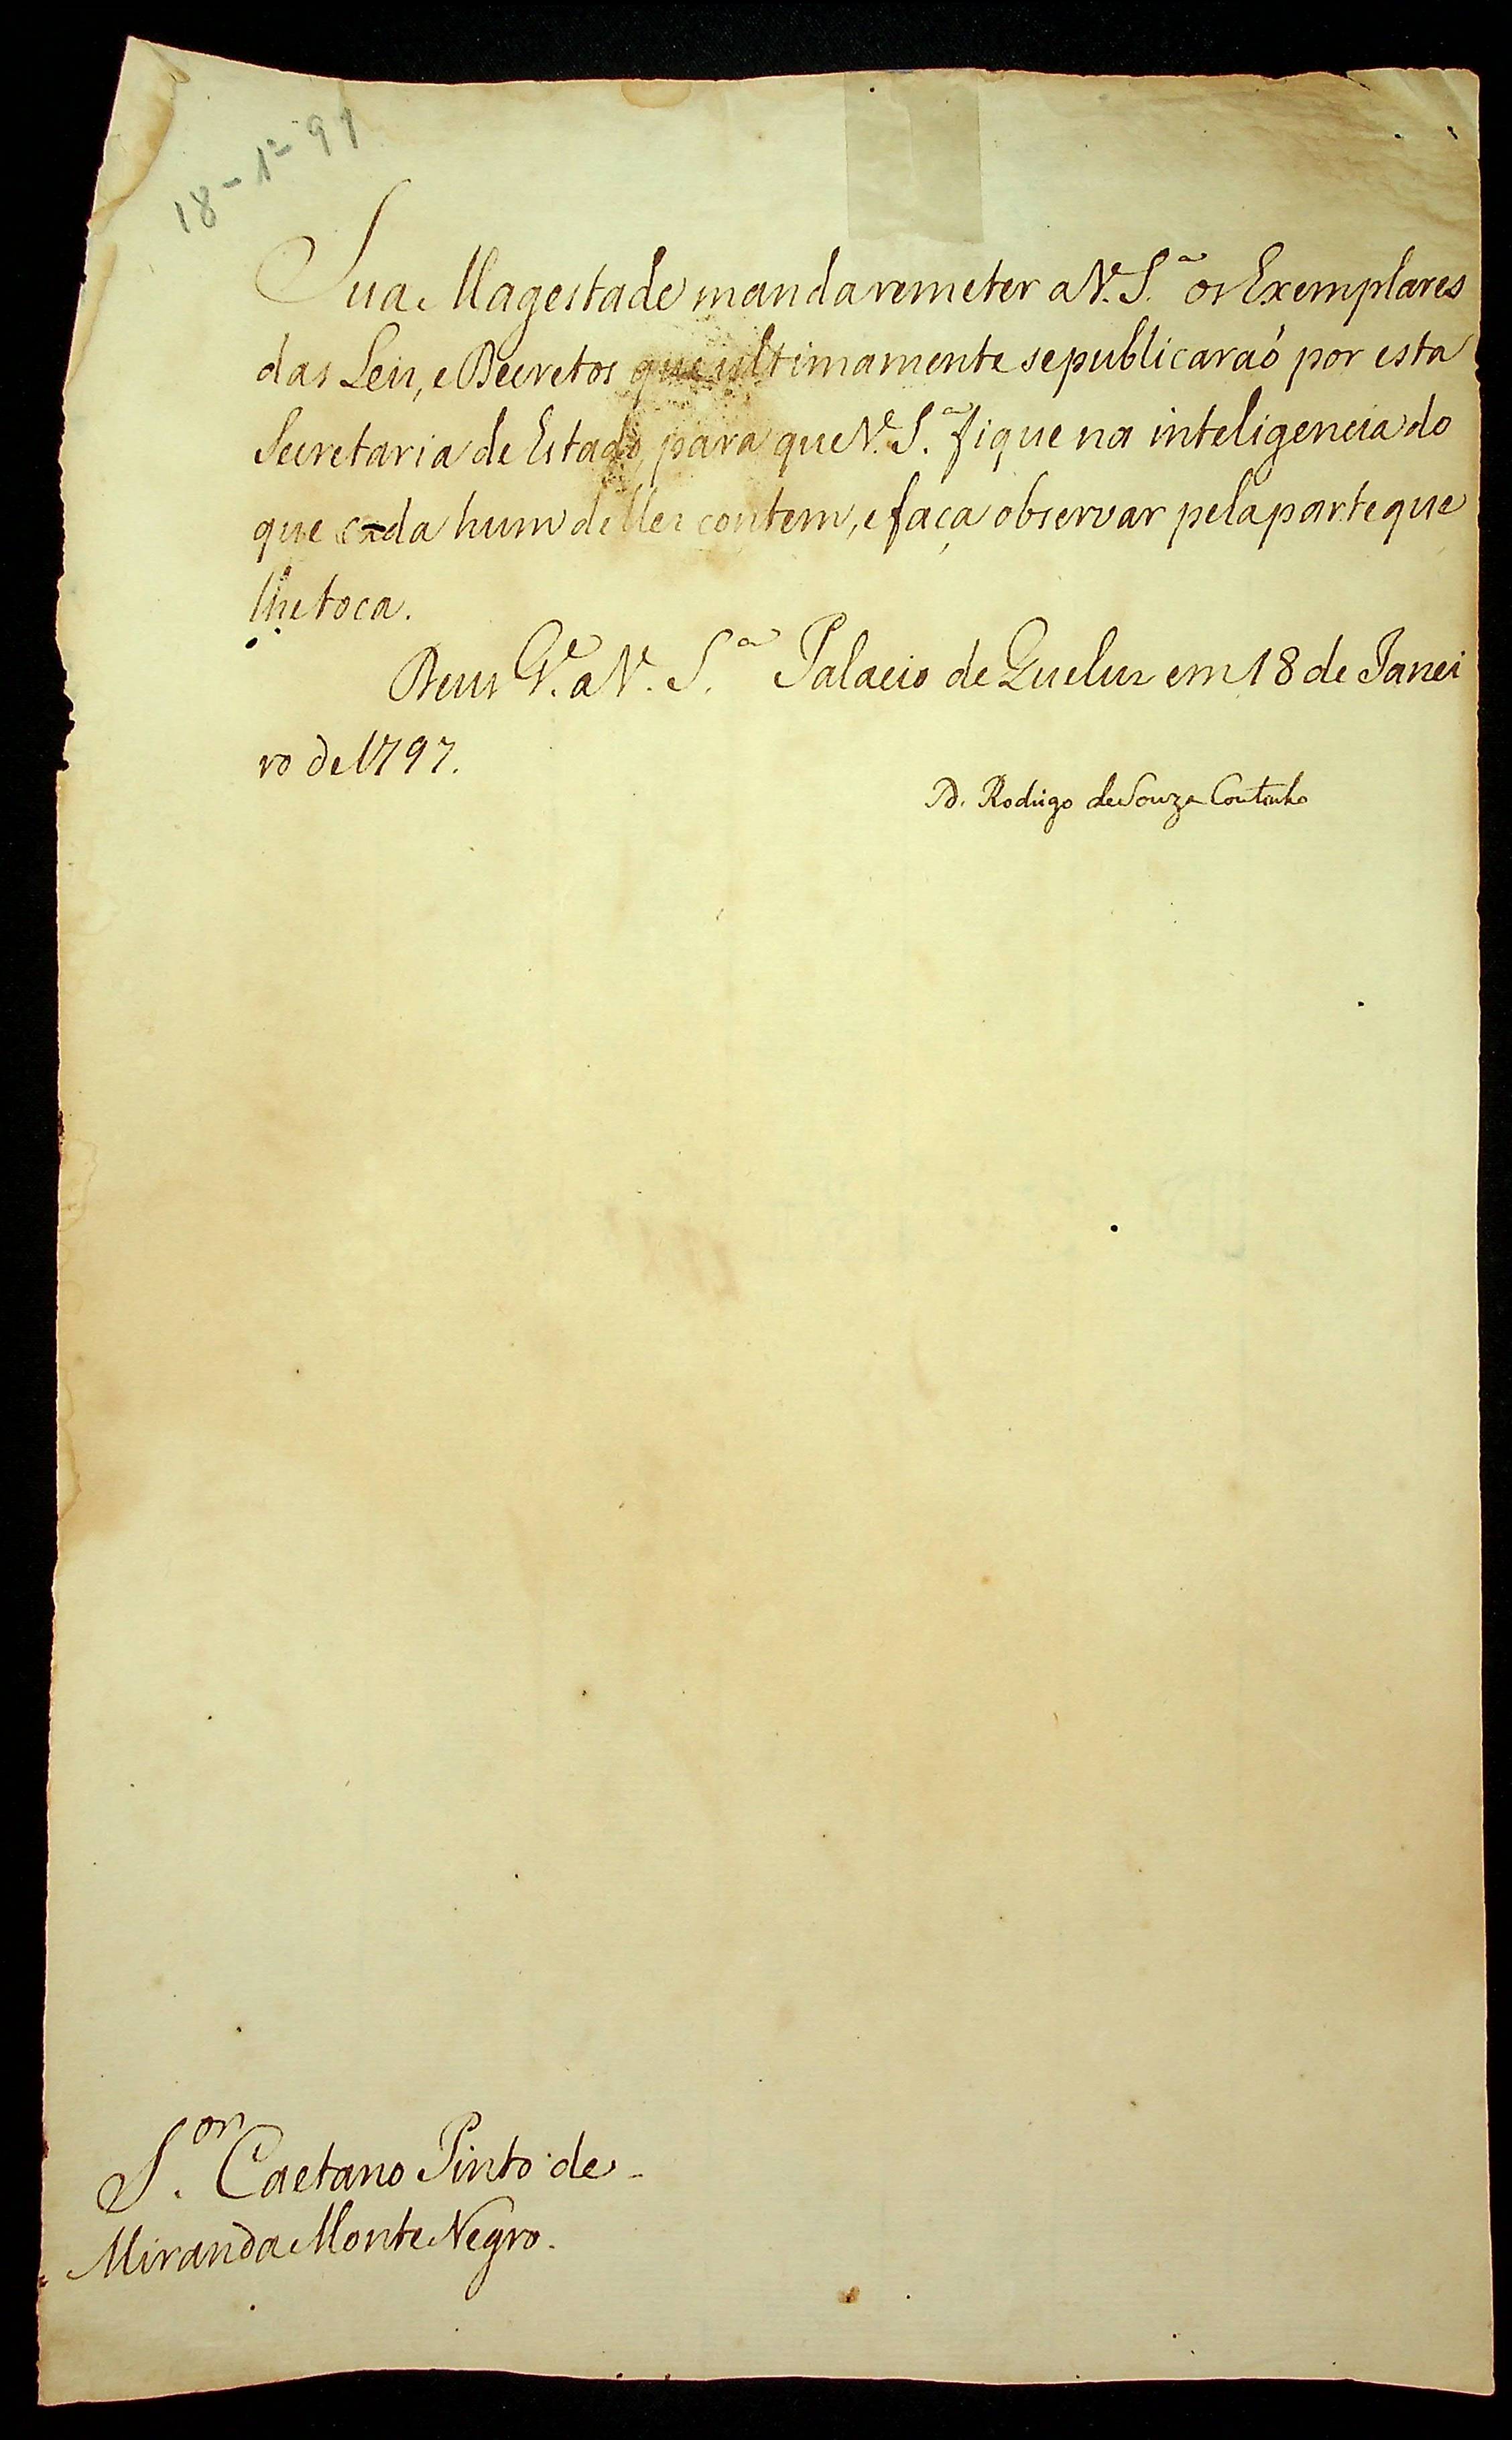 18-1º-97
Sua Magestade manda remeter a V. S.ª os Exemplares
das Leis, e Decretos que ultimamente se publicaraõ por esta
Secretaria de Estado, para que V. S.ª fique na inteligencia do
que cada hum delles contem, e faça observar pela parte que
lhe toca.
Deus G.e a V. S.ª Palacio de Queluz em 18 de Janei
ro de 1797.
D. Rodrigo de Souza Coutinho
S.or Caetano Pinto de
Miranda Monte Negro.